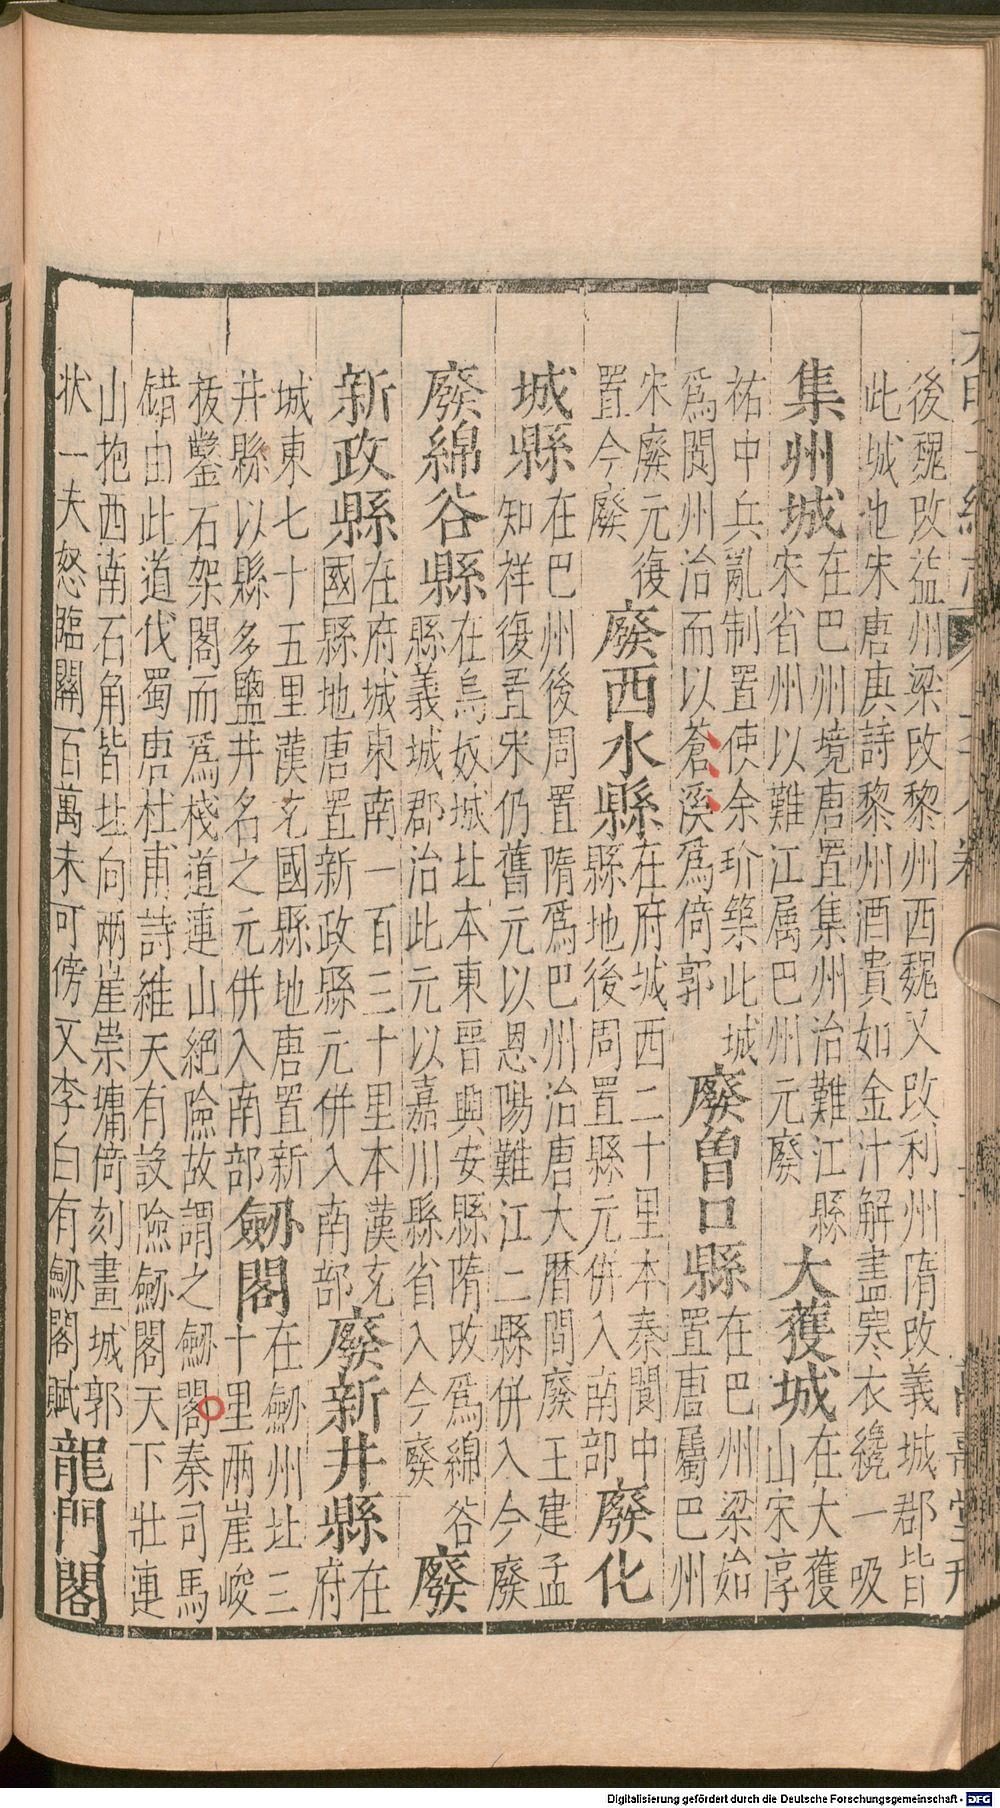 後魏改益州梁改黎州西魏又改利州隋改義城郡皆
此城也宋唐庚詩黎州酒貴如金汁解盡寒衣纔一吸
集州城
在巴州境唐置集州治難江縣
宋省州以難江属巴州元廢
大獲城
在大獲
山宋淳
祐中兵亂制置使余玠築此城
爲閬州治而以蒼溪爲倚郭
廢曾口縣
在巴州梁始
置唐屬巴州
宋廢元復
置今廢
廢西水縣
在府城西二十里本秦閬中
縣地後周置縣元併入南部
廢化
城縣
在巴州後周置隋爲巴州治唐大曆間廢王建孟
知祥復置宋仍舊元以恩陽難江二縣併入今廢
廢綿谷縣
在烏奴城北本東晉興安縣隋改爲綿谷
縣義城郡治此元以嘉川縣省入今廢
廢
新政縣
在府城東南一百三十里本漢充
國縣地唐置新政縣元併入南部
廢新井縣
在
府
城東七十五里漢充國縣地唐置新
井縣以縣多鹽井名之元併入南部
劒閣
在劒州北三
十里兩崖峻
拔鑿石架閣而爲棧道連山絕險故謂之劒閣秦司馬
錯由此道伐蜀唐杜甫詩維天有設險劒閣天下壯連
山抱西南石角皆北向兩崖崇墉倚刻畫城郭
状一夫怒臨關百萬未可傍又李白有劒閣賦
龍門閣
Digitalisierung gefördert durch die Deutsche Forschungsgemeinschaft - DFG